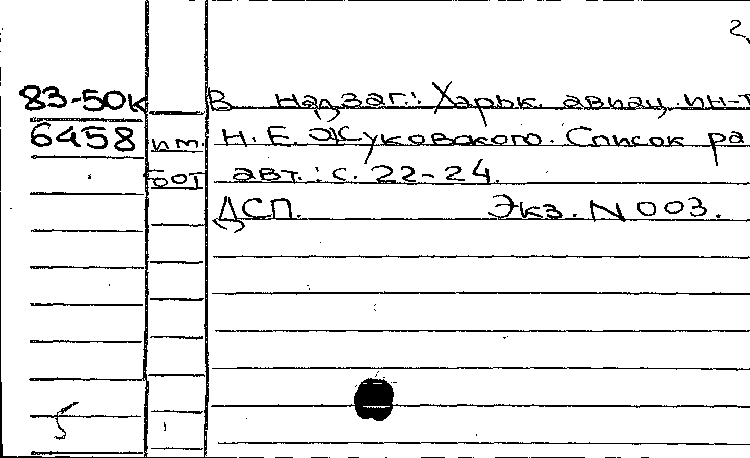 2
83-50к В надзаг.: Харьк. авиац. ин-т
6458 им. Н. Е. Жуковского. Список ра
бот авт.: с. 22-24.
ДСП. Экз. N 003.
5